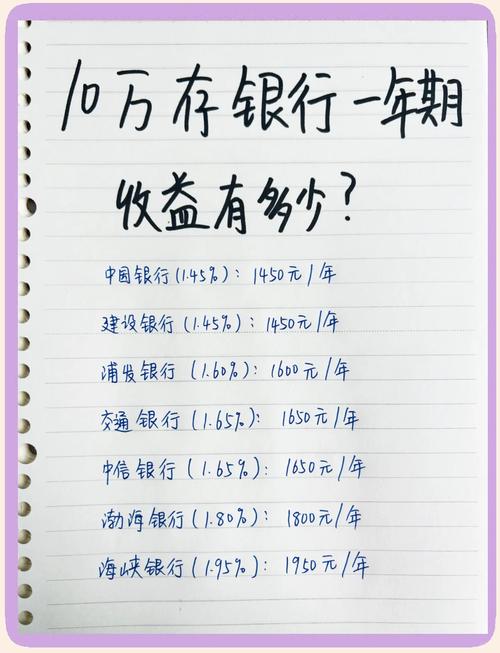 10万存银行一年期
收益有多少？
中国银行(1.45%)：1450元/年
建设银行(1.45%)：1450元/年
浦发银行(1.60%)：1600元/年
交通银行(1.65%)：1650元/年
中信银行(1.65%)：1650元/年
渤海银行(1.80%)：1800元/年
海峡银行(1.95%)：1950元/年